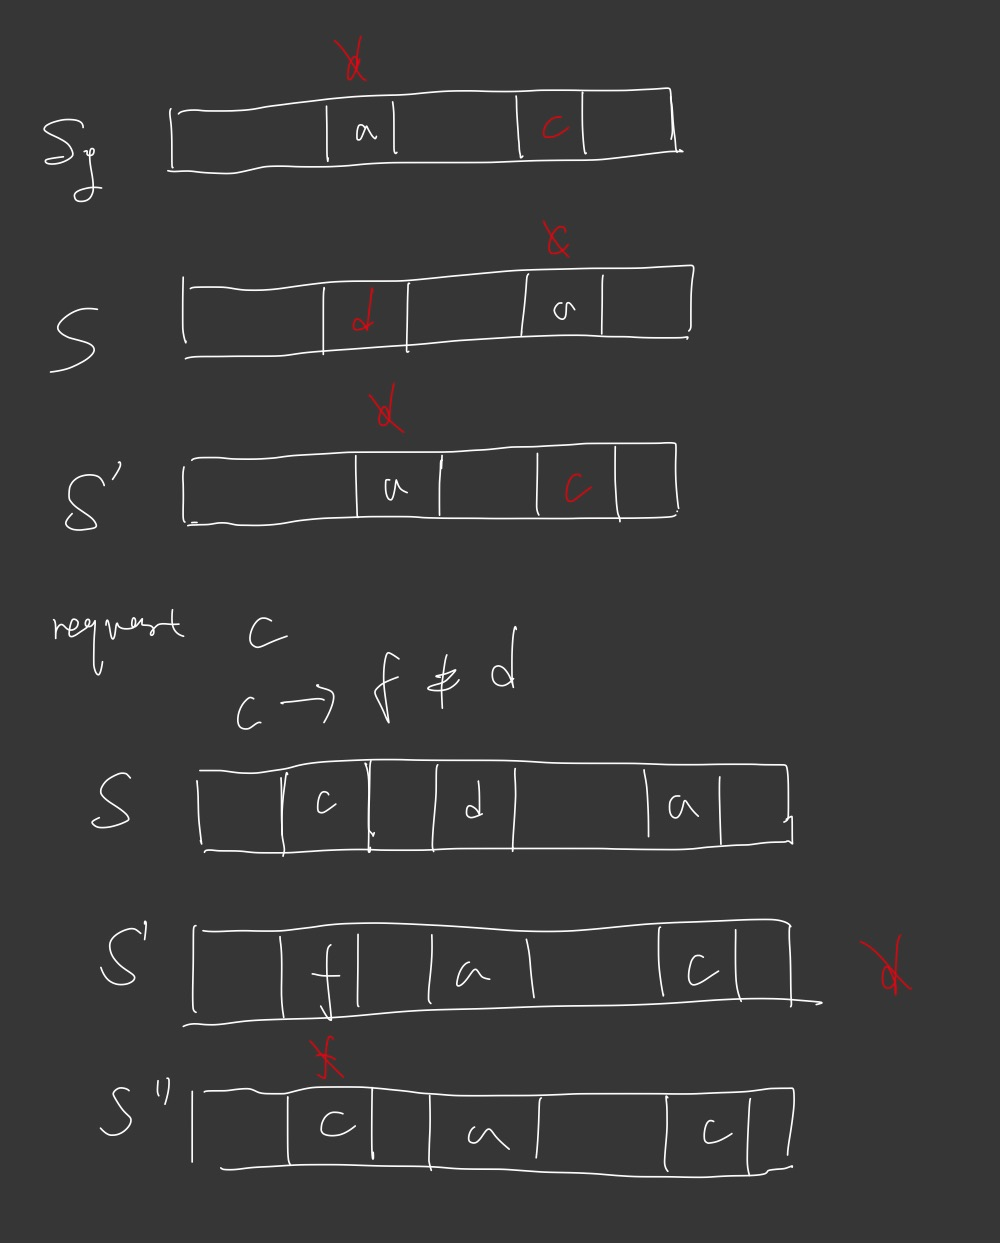 d
S_f a c
c
S d a
d
S' a c
request c
c → f ≠ d
S c d a
S' f a c d
f
S'' c a c